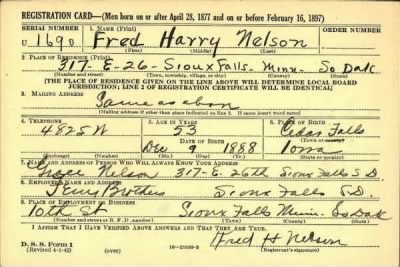 REGISTRATION CARD—(Men born on or after April 28, 1877 and on or before February 16, 1897)
SERIAL NUMBER 1. NAME (Print) ORDER NUMBER
U 1690 Fred Harry Nelson
(First) (Middle) (Last)
2. PLACE OF RESIDENCE (Print)
317-E-26- Sioux Falls- Minn- So Dak
(Number and street) (Town, township, village, or city) (County) (State)
[THE PLACE OF RESIDENCE GIVEN ON THE LINE ABOVE WILL DETERMINE LOCAL BOARD
JURISDICTION; LINE 2 OF REGISTRATION CERTIFICATE WILL BE IDENTICAL]
3. MAILING ADDRESS
Same as above
[Mailing address if other than place indicated on line 2. If same insert word same]
4. TELEPHONE 5. AGE IN YEARS 6. PLACE OF BIRTH
4825W 53 Cedar Falls
DATE OF BIRTH (Town or county)
Dec 9 1888 Iowa
(Mo.) (Day) (Yr.) (State or country)
7. NAME AND ADDRESS OF PERSON WHO WILL ALWAYS KNOW YOUR ADDRESS
Nelson 317-E-26th Sioux Falls S D
8. EMPLOYER'S NAME AND ADDRESS
Brothers Sioux Falls S.D.
9. PLACE OF EMPLOYMENT OR BUSINESS
10th St Sioux Falls Minn. So Dak
(Number and street or R. F. D. number) (Town) (County) (State)
I AFFIRM THAT I HAVE VERIFIED ABOVE ANSWERS AND THAT THEY ARE TRUE.
D. S. S. Form 1
(Revised 4-1-42) (over) Fred H Nelson